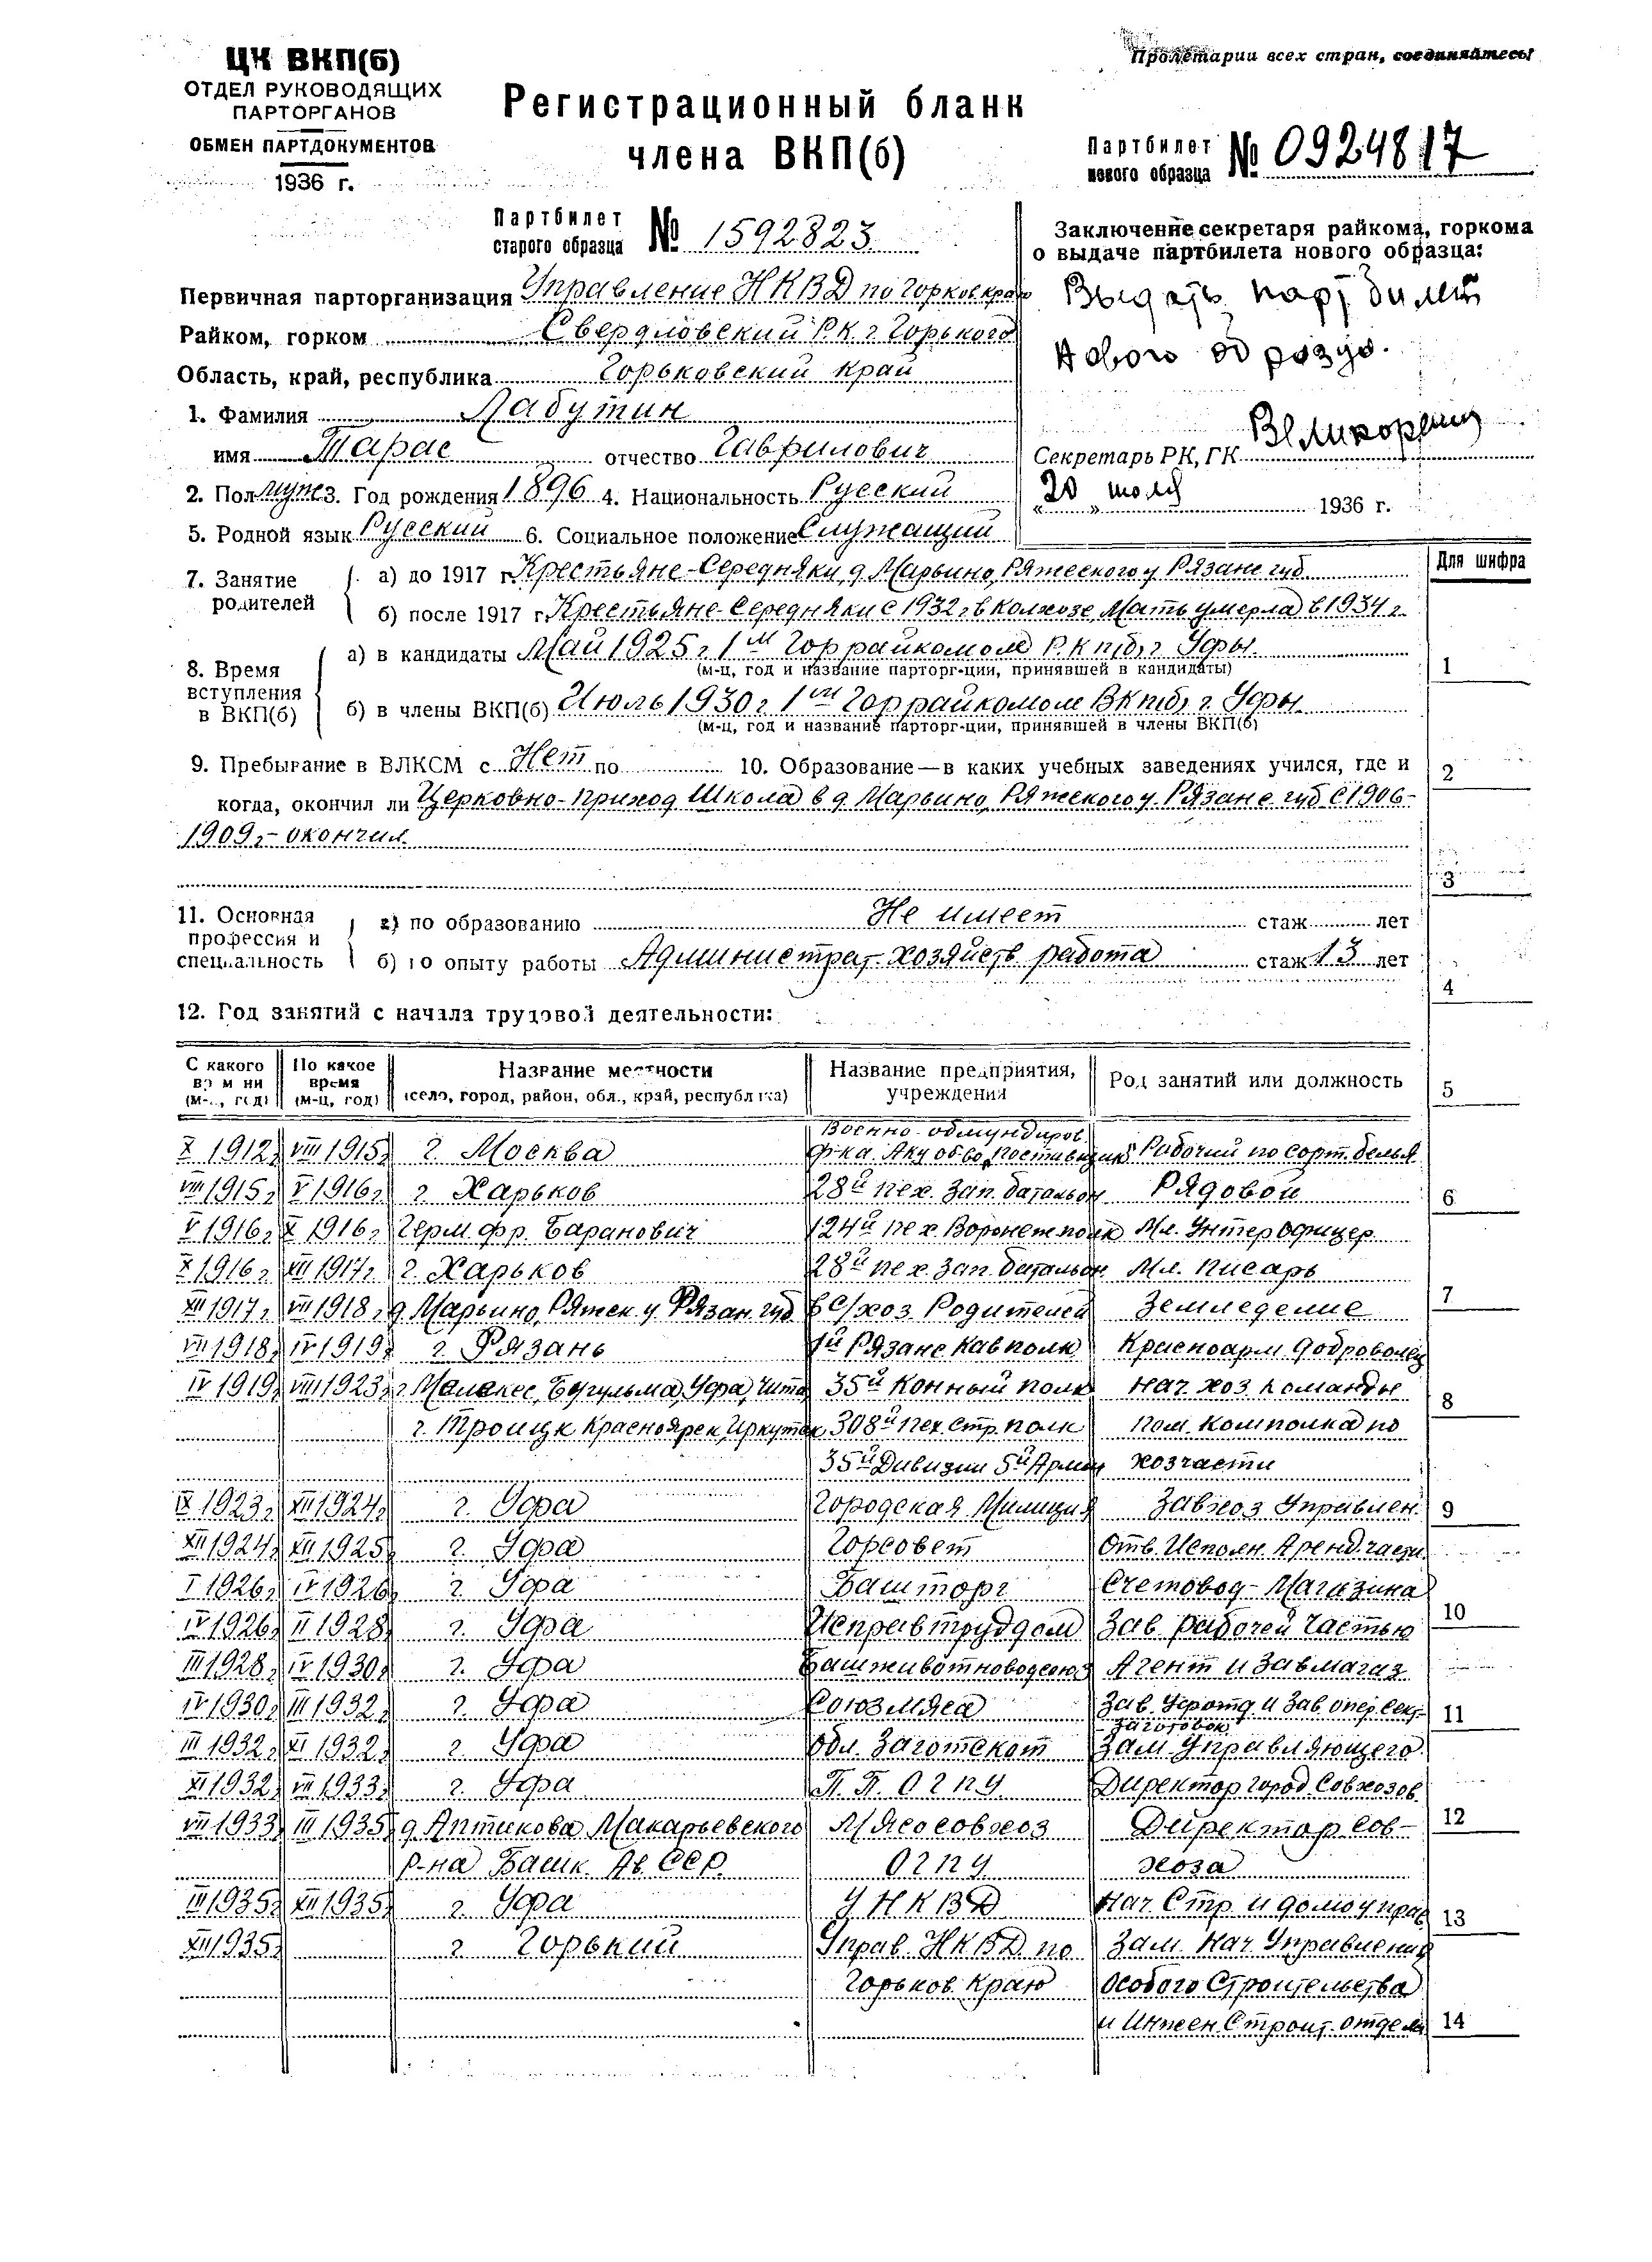 ЦК ВКП(б)
ОТДЕЛ РУКОВОДЯЩИХ
ПАРТОРГАНОВ
ОБМЕН ПАРТДОКУМЕНТОВ
1936 г.
Пролетарии всех стран, соединяйтесь!
Регистрационный бланк
члена ВКП(б)
Партбилет
нового образца № 0924817
Партбилет
старого образца № 1592823
Заключение секретаря райкома, горкома
о выдаче партбилета нового образца:
Выдать партбилет
нового образца.
Секретарь РК, ГК
20 июля 1936 г.
Первичная парторганизация Управление НКВД по Горков краю
Райком, горком Свердловский Р.К. г. Горького
Область, край, республика Горьковский край
1. Фамилия Лабутин
имя Тарас отчество Гаврилович
2. Пол муж 3. Год рождения 1896 4. Национальность Русский
5. Родной язык Русский 6. Социальное положение Служащий
Для шифра
7. Занятие родителей
а) до 1917 г. Крестьяне-Середняки, д. Марьино, Ряжского у Рязанс. губ
б) после 1917 г. Крестьяне-Середняки с 1932 г. в колхозе, Мать умерла в 1934 г.
8. Время вступления в ВКП(б)
а) в кандидаты Май 1925 г. 1м Горрайкомом Р.К.П.(б) г. Уфы.
(м-ц, год и название парторг-ции, принявшей в кандидаты)
б) в члены ВКП(б) Июль 1930 г. 1м Горрайкомом ВКП(б) г. Уфы.
(м-ц, год и название парторг-ции, принявшей в члены ВКП(б)
9. Пребывание в ВЛКСМ с Нет по 10. Образование—в каких учебных заведениях учился, где и
когда, окончил ли Церковно-приход Школа в д. Марьино, Ряжского у. Рязанс. губ с 1906-
1909 г.- окончил.
11. Основная профессия и специальность
а) по образованию Не имеет стаж лет
б) по опыту работы Администрат.-хозяйств. работа стаж 13 лет
12. Год занятий с начала трудовой деятельности:
С какого времени (м-ц, год) По какое время (м-ц, год) Название местности (село, город, район, обл., край, республика) Название предприятия, учреждения Род занятий или должность
Военно-обмундиров.
X 1912 г. VIII 1915 г. г. Москва ф-ка. Акц об-во „Поставщик" Рабочий по сорт. белья
VIII 1915 г. V 1916 г. г. Харьков 28й пех. Зап. батальон Рядовой
V 1916 г. X 1916 г. Герм. фр. Баранович 124й пех. Воронеж полк Мл. Унтер Офицер.
X 1916 г. XII 1917 г. г. Харьков 28й пех. Зап. батальон Мл. писарь
XII 1917 г. VII 1918 г. д. Марьино, Ряжск. у. Рязан. губ в с/хоз. Родителей Земледелие
VII 1918 г. IV 1919 г. г. Рязань 1й Рязанс Кавполк Красноарм. Доброволец
IV 1919 г. VIII 1923 г. г. Мелекес, Бугульма, Уфа, Чита 35й Конный полк Нач. хоз. команды
г. Троицк Красноярск, Иркутск 308й пех. стр. полк пом. Комполка по
35й Дивизии 5й Армии хозчасти
IX 1923 г. XII 1924 г. г. Уфа Городская Милиция Завхоз Управлен.
XII 1924 г. XII 1925 г. г. Уфа Горсовет Отв. Исполн. Аренд. части.
I 1926 г. IV 1926 г. г. Уфа Башторг Счетовод-Магазина
IV 1926 г. II 1928 г. г. Уфа Исправтруддом Зав. рабочей частью
III 1928 г. IV 1930 г. г. Уфа Башживотноводсоюз Агент и Завмагаз.
IV 1930 г. III 1932 г. г. Уфа Союзмяса Зав. Уфотд. и Зав. опер. сект.
- заготовок
III 1932 г. XI 1932 г. г. Уфа Обл. Заготскот Зам. Управляющего.
XI 1932 г. VII 1933 г. г. Уфа П.П. ОГПУ. Директор город. Совхозов.
VII 1933 г. III 1935 г. д. Аптикова Макарьевского Мясосовхоз Директор Сов-
р-на Башк. Ав. ССР. ОГПУ хоза
III 1935 г. XII 1935 г. г. Уфа УНКВД Нач. Стр. и домоуправ.
XII 1935 г. г. Горький Управ. НКВД по Зам. Нач. Управления
Горьков. Краю Особого Строительства
и Инжен. Строит. отдела
1
2
3
4
5
6
7
8
9
10
11
12
13
14